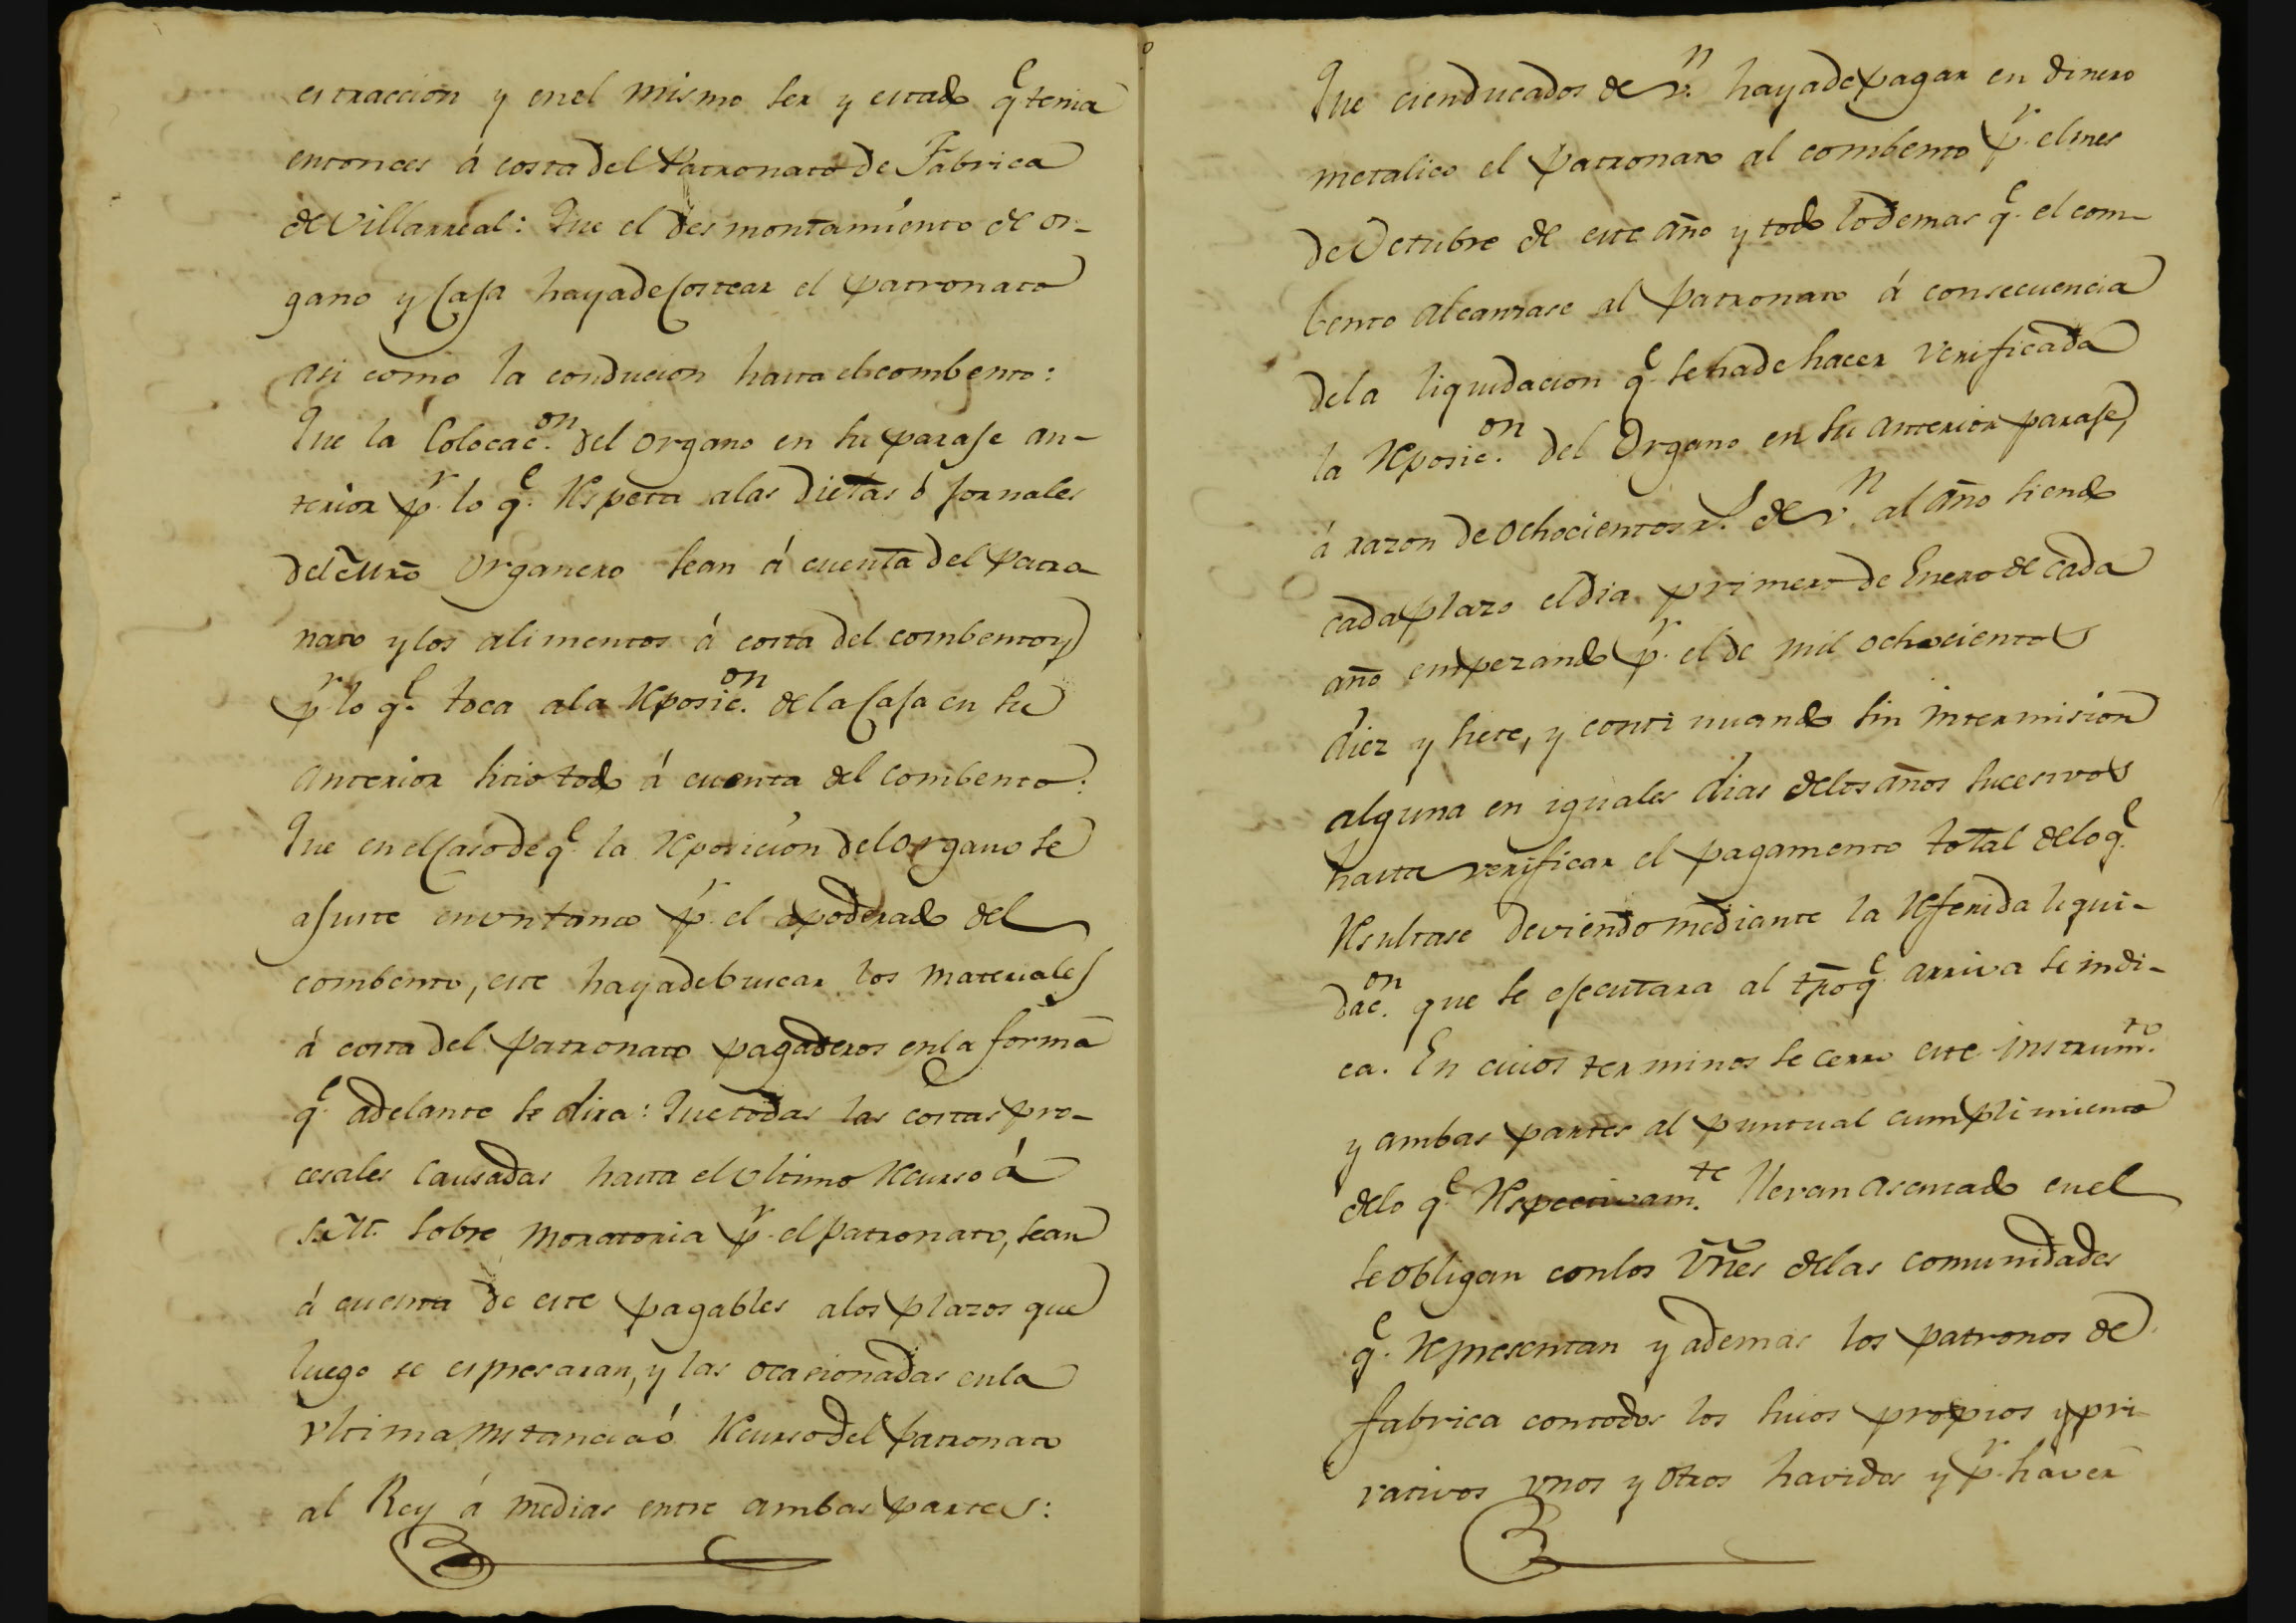 estraccion y en el mismo ser y estado q.e tenia
entonces á costa del Patronato de Fabrica
de Villarreal: Que el desmontamiento de or-
gano y Caja haya de Costear el Patronato
asi como la conducion hasta el combento:
Que la Colocac.on del organo en su paraje an-
terior p.r lo q.e Respecta a las Dietas ó jornales
del Mro organero sean á cuenta del Patro-
nato y los alimentos á costa del combento y
p.r lo q.e toca a la Reposic.on de la Caja en su
anterior sitio todo á cuenta del combento:
Que en el Caso de q.e la Reposicion del organo se
ajuste en un tanto p.r el apoderado del
combento, este haya de buscar los materiales
á costa del Patronato pagaderos en la forma
q.e adelante se dira: Que todas las costas pro-
cesales Causadas hasta el vltimo Recurso á
S.M. sobre Moratoria p.r el Patronato, sean
á cuenta de este pagables a los plazos que
luego se espresaran, y las ocasionadas en la
vltima instancia ó Recurso del Patronato
al Rey á medias entre ambas partes:
Que cien ducados de v.n haya de pagar en dinero
metalico el Patronato al combento p.r el mes
de Octubre de este año y todo lo demas q.e el com-
bento alcanzase al Patronato á consecuencia
de la liquidacion q.e se ha de hacer verificada
la Reposic.on del Organo en su anterior paraje,
á razon de ochocientos r.s de v.n al año siendo
cada plazo el dia primero de Enero de cada
año empezando p.r el de mil ochocientos
diez y siete, y continuando sin intermision
alguna en iguales dias de los años sucesivos
hasta verificar el pagamento total de lo q.e
Resultase deviendo mediante la Referida liqui-
dac.on que se ejecutara al tpo q.e arriva se indi-
ca. En cuios terminos se cerro este instrum.to
y ambas partes al puntual cumplimiento
de lo q.e Respectivam.te llevan asentado en el
se obligan con los vnes de las comunidades
q.e Representan y ademas los patronos de
fabrica con todos los suios propios y pri-
vativos vnos y otros havidos y p.r haver